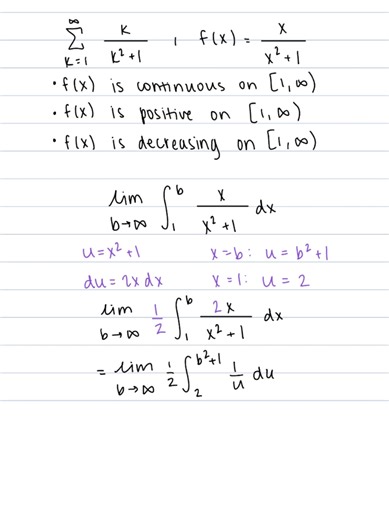 ∞ ∑ k=1 k/(k²+1) , f(x) = x/(x²+1)
• f(x) is continuous on [1,∞)
• f(x) is positive on [1,∞)
• f(x) is decreasing on [1,∞)
lim b→∞ ∫₁ᵇ x/(x²+1) dx
u=x²+1 x=b: u=b²+1
du=2x dx x=1: u=2
lim b→∞ 1/2 ∫₁ᵇ 2x/(x²+1) dx
= lim b→∞ 1/2 ∫₂^(b²+1) 1/u du